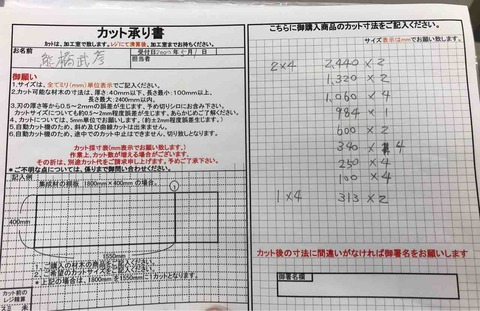 カット承り書
カットは、加工室で致します。レジにて清算後、加工室までお持ちください。
お名前
受付日
月
日
担当者
御願い
1.サイズは、全てミリ(mm)単位表示でご記入ください。
2.カット可能な材木の寸法は、厚さ:40mm以下、長さ最小:100mm以上、
長さ最大:2400mm以内。
3.刃の厚さ等から0.5~2mmの誤差が生じます。予め切りシロにお含み下さい。
カットサイズについても約0.5~2mm程度誤差が生じます。あらかじめご了承ください。
4.カットについては、5mm単位でお願いします。(約±2mm程度誤差生じます。)
5.自動カット機のため、斜め及び曲線カットは出来ません。
6.自動カット機のため、途中でのカット中止はできません。切り放しとなります。
カット採寸後(mm表示でお願いします)
作業上、カット数が増える場合がございます。
その折は、別途カット代をご請求申し上げます。予めご了承下さい。
*ご不明な点については、係りまで御問い合わせください。
記入例
集成材の棚板 1800mm×400mm の場合。
①
400mm
1550mm
*上記の場合は、1800mmを1550mmに1カットとなります。
カット前の
レジ精算
こちらに御購入商品のカット寸法をご記入ください。
サイズ表示はmmでお願い致します。
2×4 2,440×2
1,320×2
1,060×4
984×1
600×2
340×4
250×4
100×4
1×4 313×2
カット後の寸法に間違いがなければ御署名をお願いします
御署名欄